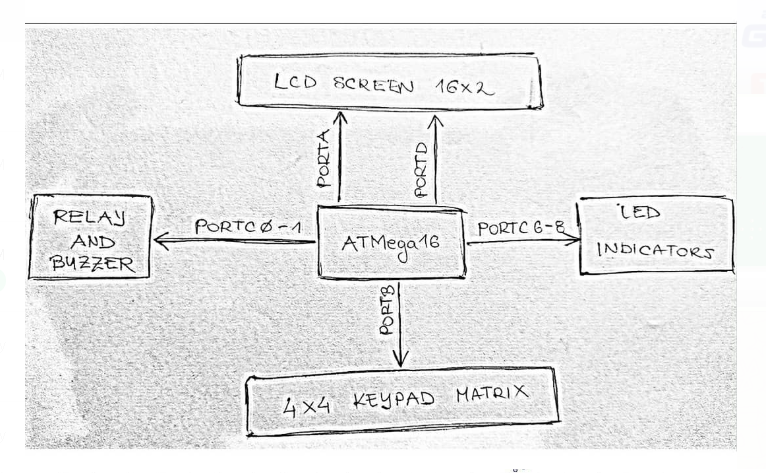 LCD SCREEN 16x2
PORTA
PORTD
RELAY
AND
BUZZER
PORTC0-1
ATMega16
PORTC6-8
LED
INDICATORS
PORTB
4x4 KEYPAD MATRIX